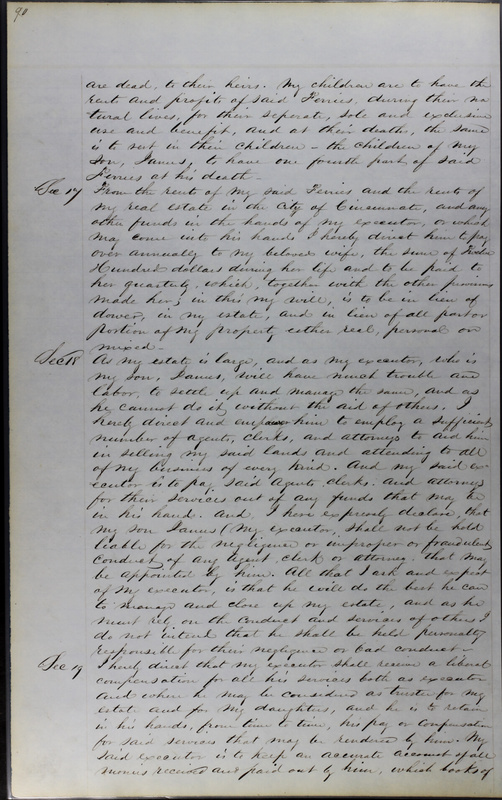 90
are dead, to their heirs. My children are to have the
rent and profits of said Ferries, during their na
tural lives, for their seperate, sole and exclusive
use and benefit, and at their deaths, the same
is to vest in their children – the children of my
Son, James, to have one fourth part of said
Ferries at his death –
Sec 17 From the rents of my said Ferries and the rents of
my real estate in the City of Cincinnati, and any
other funds in the hands of my executor, or which
may come into his hands I hereby direct him to pay
over annually to my beloved wife, the sum of Twelve
Hundred dollars during her life and to be paid to
her quarterly. which, together with the other provisions
made her, in this my will, is to be in lieu of
dower, in my estate, and in lieu of all part or
portion of my property either real, personal or
mixed –
Sec 18 As my estate is large, and as my executor, who is
my son, James, will have much trouble and
labor, to settle up and manage the same, and as
he cannot do it, without the aid of others. I
hereby direct and empower him to employ a sufficient
number of agents, clerks, and attorneys to aid him
in selling my said lands and attending to all
of my business of every kind. And my said ex-
ecutor is to pay said Agents clerks. and attorneys
for their services out of any funds that may be
in his hand. And, I here expressly declare, that
my son James (my executor, shall not be held
liable for the negligence or improper or fraudulent
conduct of any agent, clerk or attorney. that may
be appointed by him. All that I ask and expect
of my executor, is that he will do the best he can
to manage and close up my estate, and as he
must rely on the conduct and services of others I
do not intend that he shall be held personally
responsible for their negligence or bad conduct –
Sec 19 I hereby direct that my executor shall receive a liberal
compensation for all his services both as executor
and where he may be considered as trustee for my
estate and for my daughters, and he is to retain
in his hands, from time to time, his pay or compensation
for said services that may be rendered by him. My
said executor is to keep an accurate account of all
monies received and paid out by him, which books of